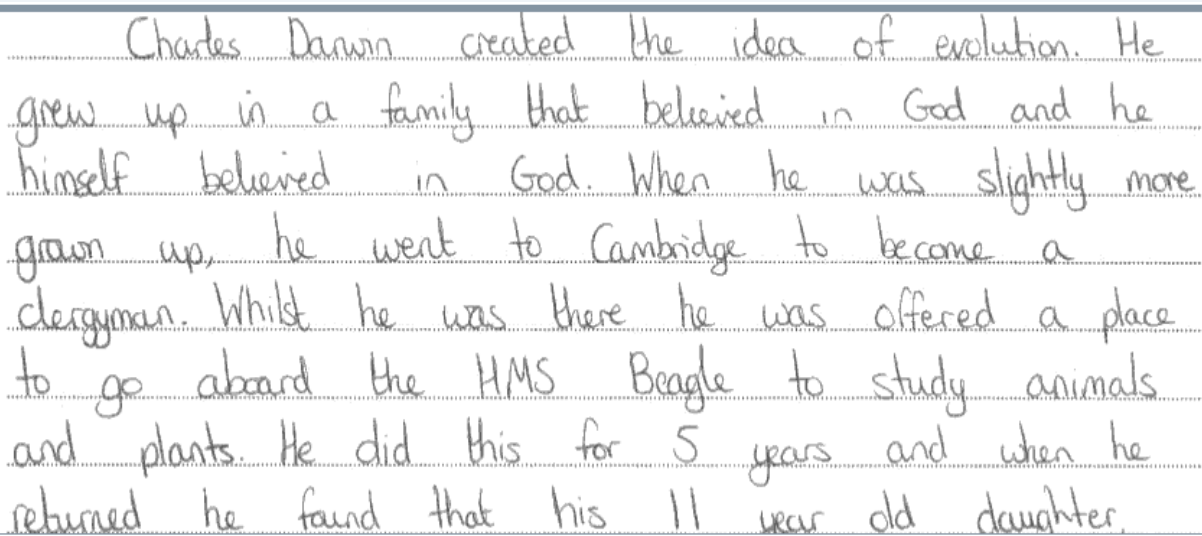 Charles Darwin created the idea of evolution. He
grew up in a family that beleeived in God and he
himself believed in God. When he was slightly more
grown up, he went to Cambridge to become a
clergyman. Whilst he was there he was offered a place
to go aboard the HMS Beagle to study animals
and plants. He did this for 5 years and when he
returned he found that his 11 year old daughter,